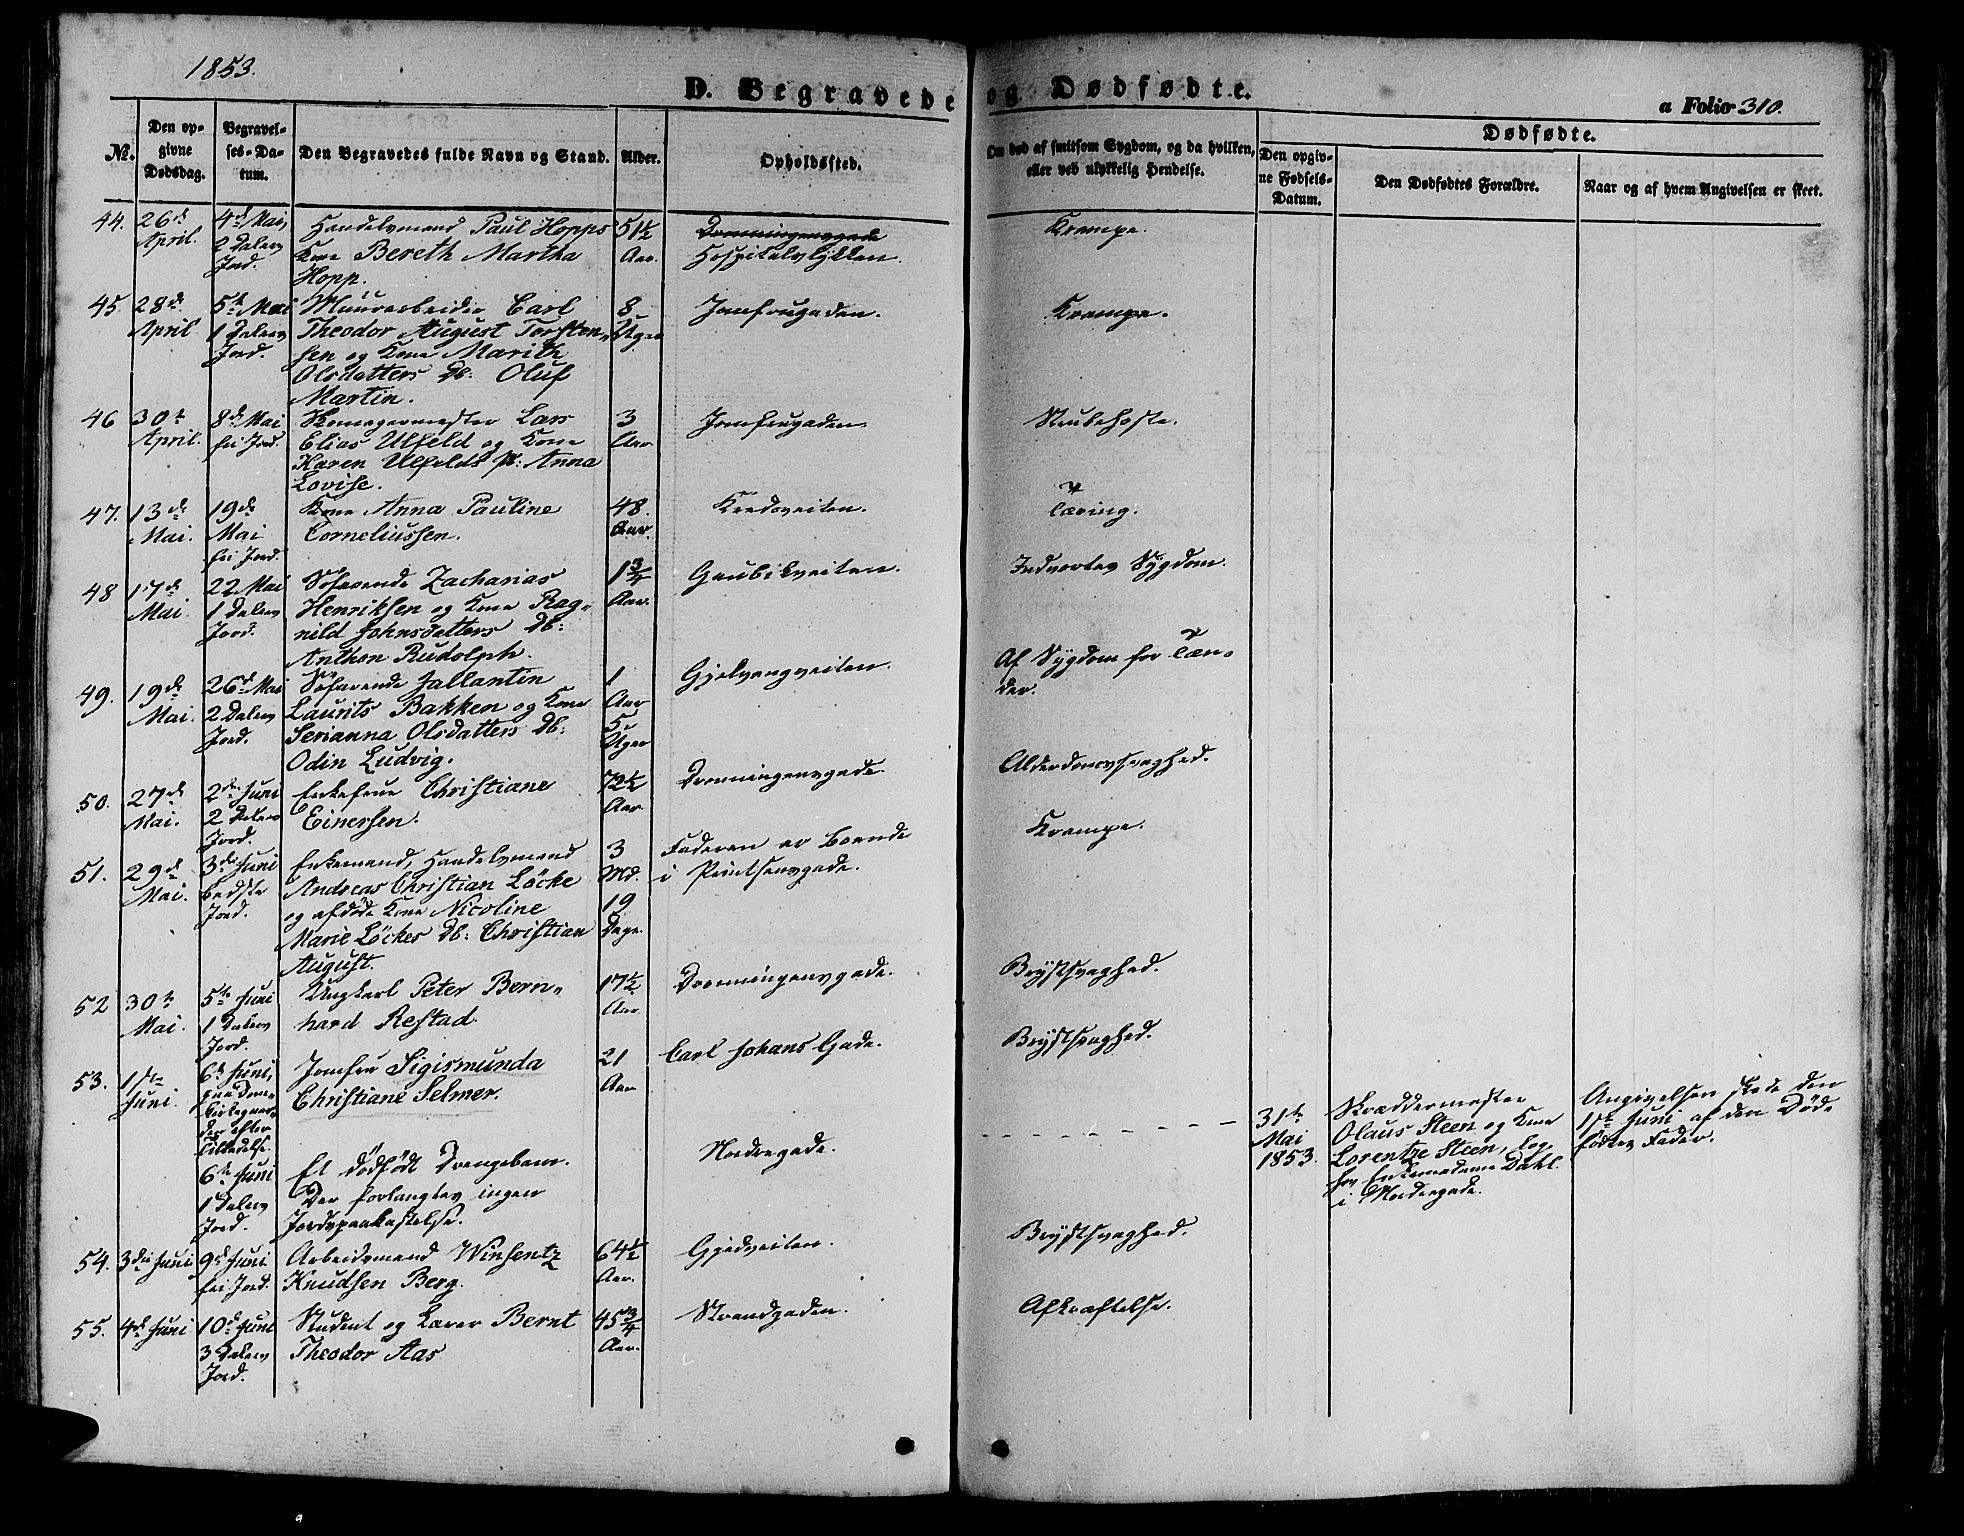 1853.
D. Begravede og Dødfødte.
a Folio 310.
No.
Den opgivne Dødsdag.
Begravelses-Datum.
Den Begravedes fulde Navn og Stand.
Alder.
Opholdssted.
Om død af smitsom Sygdom, og da hvilken, eller ved ulykkelig Hendelse.
Dødfødte.
Den opgivne Fødsels-Datum.
Den Dødfødtes Forældre.
Naar og af hvem Angivelsen er skeet.
44. 26de April. 4de Mai, 2 Dalers Jord.
Handelsmand Paul Hopps
Kone Bereth Martha
Hopp.
51½ Aar.
Dronningensgade
Hospitalsløkken.
Krampe.
45 28de April 5te Mai 1 Dalers Jord.
Muurarbeider Carl
Theodor August Torsten-
sen og Kone Marith
Olsdatters Db: Oluf
Martin.
8 Uger
Jomfrugaden.
Krampe.
46 30te April. 8de Mai fri Jord.
Skomagermester Lars
Elias Ulfeld og Kone
Karen Ulfelds Pb: Anna
Lovise.
3 Aar
Jomfrugaden
Strubehoste.
47. 13de Mai. 19de Mai fri Jord.
Kone Anna Pauline
Corneliussen.
48. Aar.
Tæring.
48 17de Mai. 22 Mai 1 Dalers Jord.
Søfarende Zacharias
Henriksen og Kone Rag-
nild Johnsdatters Db:
Anthon Rudolph.
1¾ Aar.
Gaubækveiten.
Indvortes Sygdom.
49. 19de Mai. 26de Mai 2 Dalers Jord.
Søfarende Jallantin
Laurits Bakken og Kone
Serianna Olsdatters Db:
Odin Ludvig.
1 Aar 5 Uger
Gjelvangveiten.
Af Sygdom for Tæn-
der.
50. 27de Mai. 2den Juni 2 Dalers Jord.
Enkefrue Christiane
Einersen.
72½ Aar.
Dronningensgade.
Alderdomssvaghed.
51. 29de Mai. 3die Juni bedste Jord.
Enkemand, Handelsmand
Andreas Christian Löcke
og afdøde Kone Nicoline
Marie Löckes Db: Christian
August.
3 Md. 19 Dage.
Faderen er boende
i Printsensgade.
Krampe.
52 30te Mai. 5te Juni 1 Dalers Jord.
Ungkarl Peter Bern-
hard Restad
17½ Aar.
Dronningensgade.
Brystsvaghed.
53. 1ste Juni. 6te Juni, paa Dom-
kirkegaar-
den efter
Tilladelse.
Jomfru Sigismunda
Christiane Selmer.
21 Aar
Carl Johans Gade.
Brystsvaghed.
6te Juni 1 Dalers Jord.
Et dødfødt Drengebarn.
Der forlangtes ingen
Jordspaakastelse.
Nordregade.
31te Mai 1853.
Skræddermester
Olaus Steen og Kone
Lorentze Steen, log.
hos Enkemadame Dahl
i Nordregade.
Angivelsen skede den
1ste Juni af den Død-
fødtes Fader.
54. 3die Juni 9de Juni fri Jord.
Arbeidsmand Winsentz
Knudsen Berg.
64½ Aar.
Gjedveiten.
Brystsvaghed.
55. 4de Juni 10de Juni 3 Dalers Jord.
Student og Lærer Bernt
Theodor Aas
45¾ Aar.
Strandgaden.
Afkræftelse.